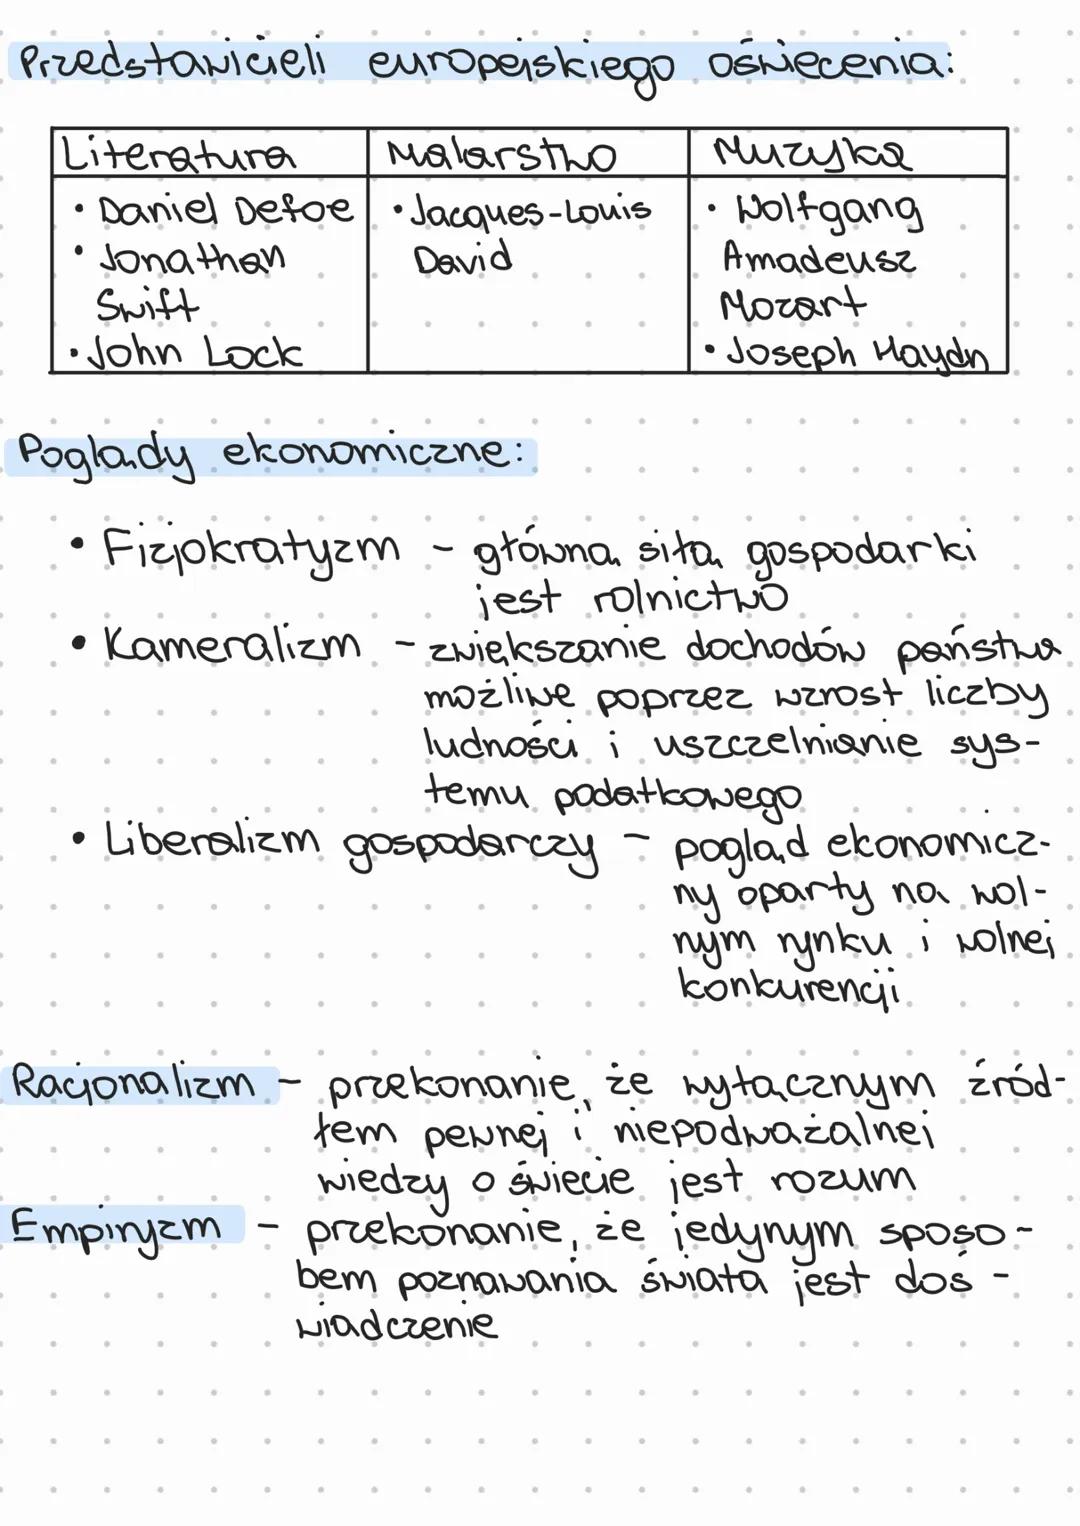 Przedstawicieli europejskiego oświecenia:
Literatura Malarstwo Muzyka
• Daniel Defoe
• Jonathan
Swift
• John Lock
• Jacques-Louis
David
• Wolfgang
Amadeusz
Mozart
• Joseph Haydn
Poglądy ekonomiczne:
• Fizjokratyzm - główną siłą gospodarki
jest rolnictwo
• Kameralizm - zwiększanie dochodów państwa
możliwe poprzez wzrost liczby
ludności i uszczelnianie sys-
temu podatkowego
• Liberalizm gospodarczy - pogląd ekonomicz-
ny oparty na wol-
nym rynku i wolnej
konkurencji
Racjonalizm - przekonanie, że wyłącznym źród-
łem pewnej i niepodważalnej
wiedzy o świecie jest rozum
Empiryzm - przekonanie, że jedynym sposo-
bem poznawania świata jest doś-
wiadczenie